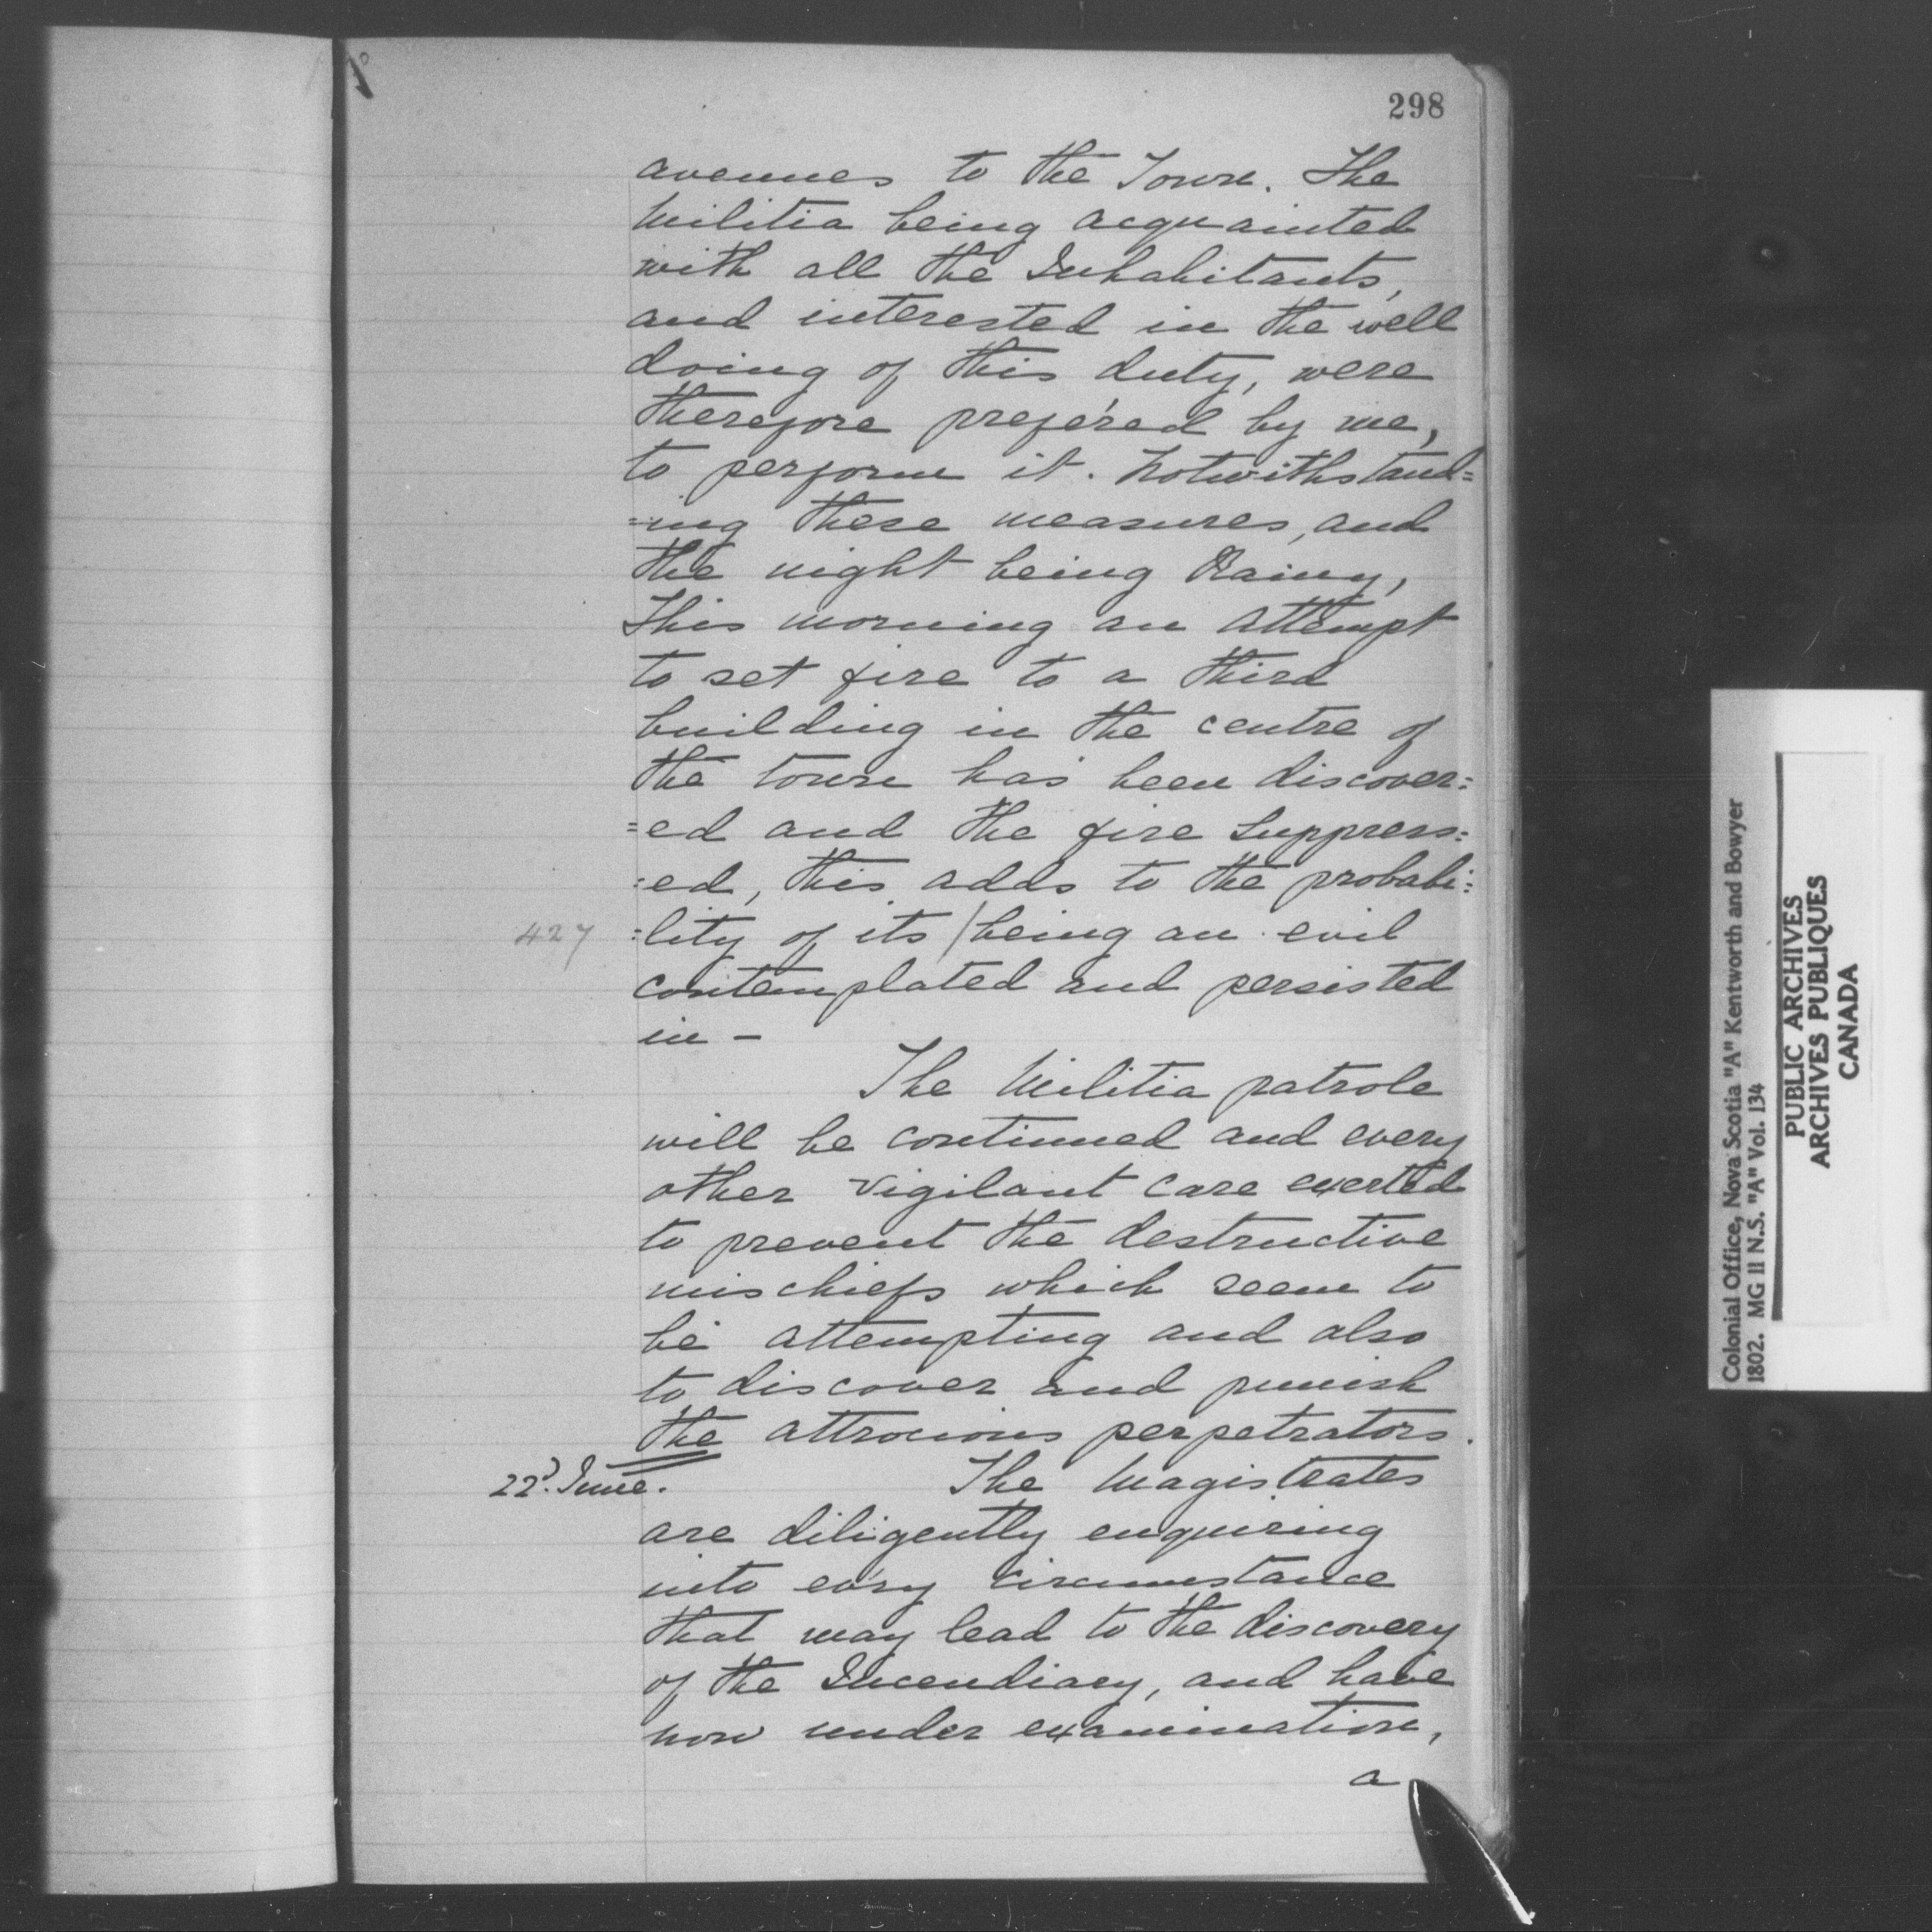 298
avenues to the Town. The
Militia being acquainted
with all the Inhabitants,
and interested in the well
doing of this duty, were
therefore prefe'red by me,
to perform it. Notwithstand=
=ing these measures, and
the night being Rainy,
This morning an attempt
to set fire to a third
building in the centre of
the town has been discover=
=ed and the fire suppress=
=ed, this adds to the probabi=
427 =lity of its / being an evil
contemplated and persisted
in -
The Militia patrole
will be continued and every
other vigilant care exerted
to prevent the destructive
mischiefs which seem to
be attempting and also
to discover and punish
the attrocious perpetrators.
22d. June. The Magistrates
are diligently enquiring
into ev'ry circumstance
that may lead to the discovery
of the Incendiary, and have
now under examination,
a
Colonial Office, Nova Scotia "A" Kentworth and Bowyer
1802. MG 11 N.S. "A" Vol. 134
PUBLIC ARCHIVES
ARCHIVES PUBLIQUES
CANADA